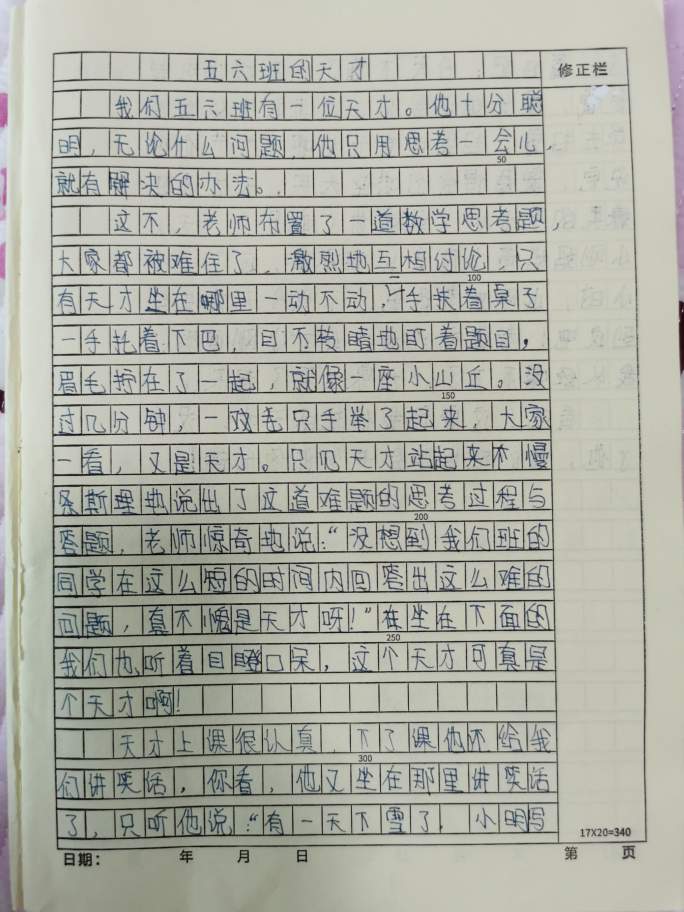 五六班的天才
修正栏
我们五六班有一位天才。他十分聪
明，无论什么问题，他只用思考一会儿，
50
就有解决的办法。
这不，老师布置了一道数学思考题，
大家都被难住了，激烈地互相讨论，只
100
有天才坐在哪里一动不动，一手扶着桌子
一手托着下巴，目不转睛地盯着题目，
眉毛拧在了一起，就像一座小山丘。没
150
过几分钟，一双毛只手举了起来，大家
一看，又是天才。只见天才站起来不慢
条斯理地说出了这道难题的思考过程与
200
答题，老师惊奇地说：“没想到我们班的
同学在这么短的时间内回答出这么难的
问题，真不愧是天才呀！”在坐在下面的
250
我们也听着目瞪口呆，这个天才可真是
个天才啊！
天才上课很认真，下了课他还给我
300
们讲笑话，你看，他又坐在那里讲笑话
了，只听他说：“有一天下雪了，小明写
17X20=340
日期： 年 月 日 第 页